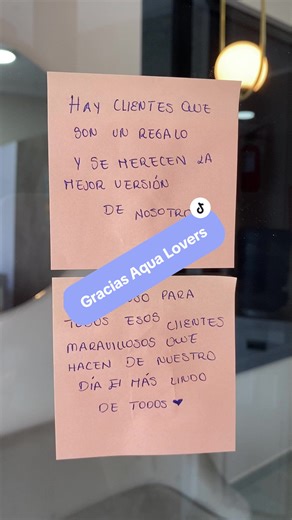 HAY CLIENTES QUE
SON UN REGALO
Y SE MERECEN LA
MEJOR VERSIÓN
DE NOSOTRO
Gracias Aqua Lovers
PARA
TODOS ESOS CLIENTES
MARAVILLOSOS QUE
HACEN DE NUESTRO
DÍA EL MÁS LINDO
DE TODOS ♥